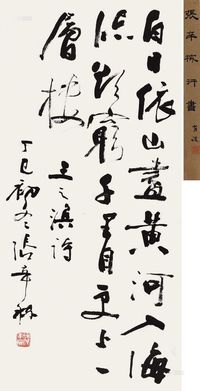 張辛稼行書
白日依山盡黃河入海
流欲窮千里目更上一
層樓
王之渙詩
丁巳初冬張辛稼